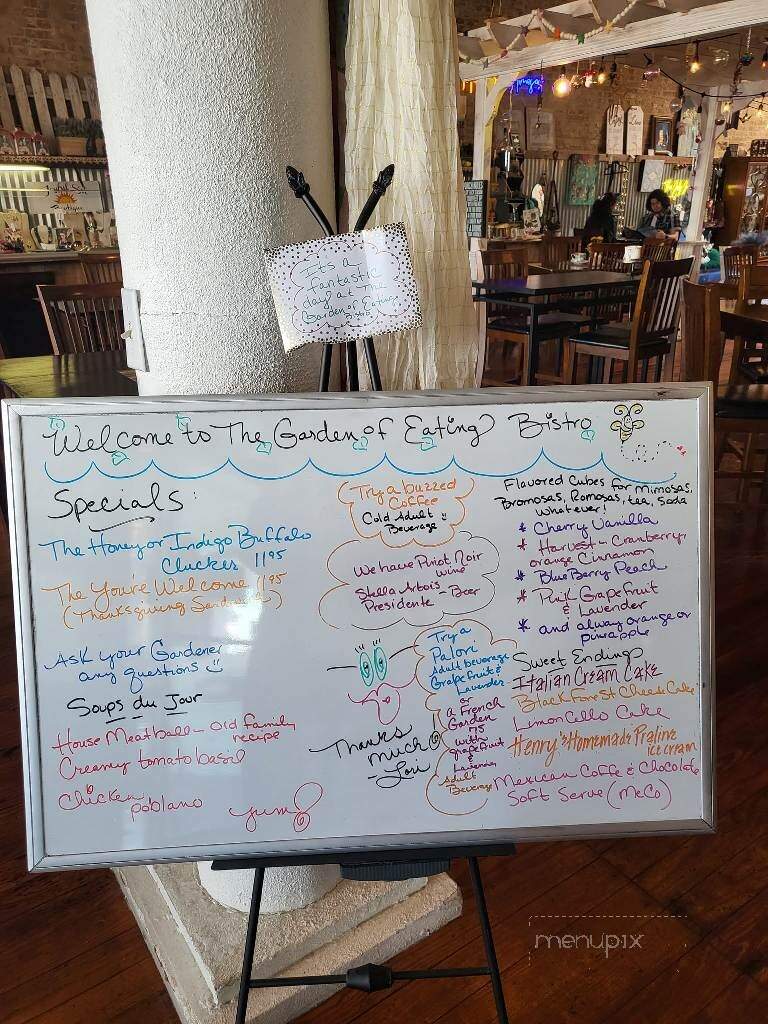 It's a
fantastic
day at The
Garden of Eating
Bistro
Welcome to The Garden of Eating Bistro
Specials:
The Honey or Indigo Buffalo
Cluckers 1195
The You're Welcome 1195
(Thanksgiving Sandwich)
Ask your Gardener
any questions
Soups du Jour
House Meatball - old family
recipe
Creamy tomato basil
Chicken
poblano
yum!
Try a buzzed
Coffee
Cold Adult
Beverage
We have Pinot Noir
wine
Stella Artois
Presidente - Beer
Try a
Palori
Adult beverage
Grapefruit &
Lavender
or
a French
Garden
75
with
grapefruit
&
Lavender
Adult
Beverage
Thanks
much
- Lori
Flavored Cubes for mimosas,
Bromosas, Romosas, tea, Soda
whatever!
* Cherry Vanilla
* Harvest - Cranberry,
orange Cinnamon
* BlueBerry Peach
* Pink Grapefruit
& Lavender
* and always orange or
pineapple
Sweet Endings
Italian Cream Cake
Black Forest Cheese Cake
Limoncello Cake
Henry's Homemade Praline
ice cream
Mexican Coffe & Chocolate
Soft Serve (MeCo)
menupix